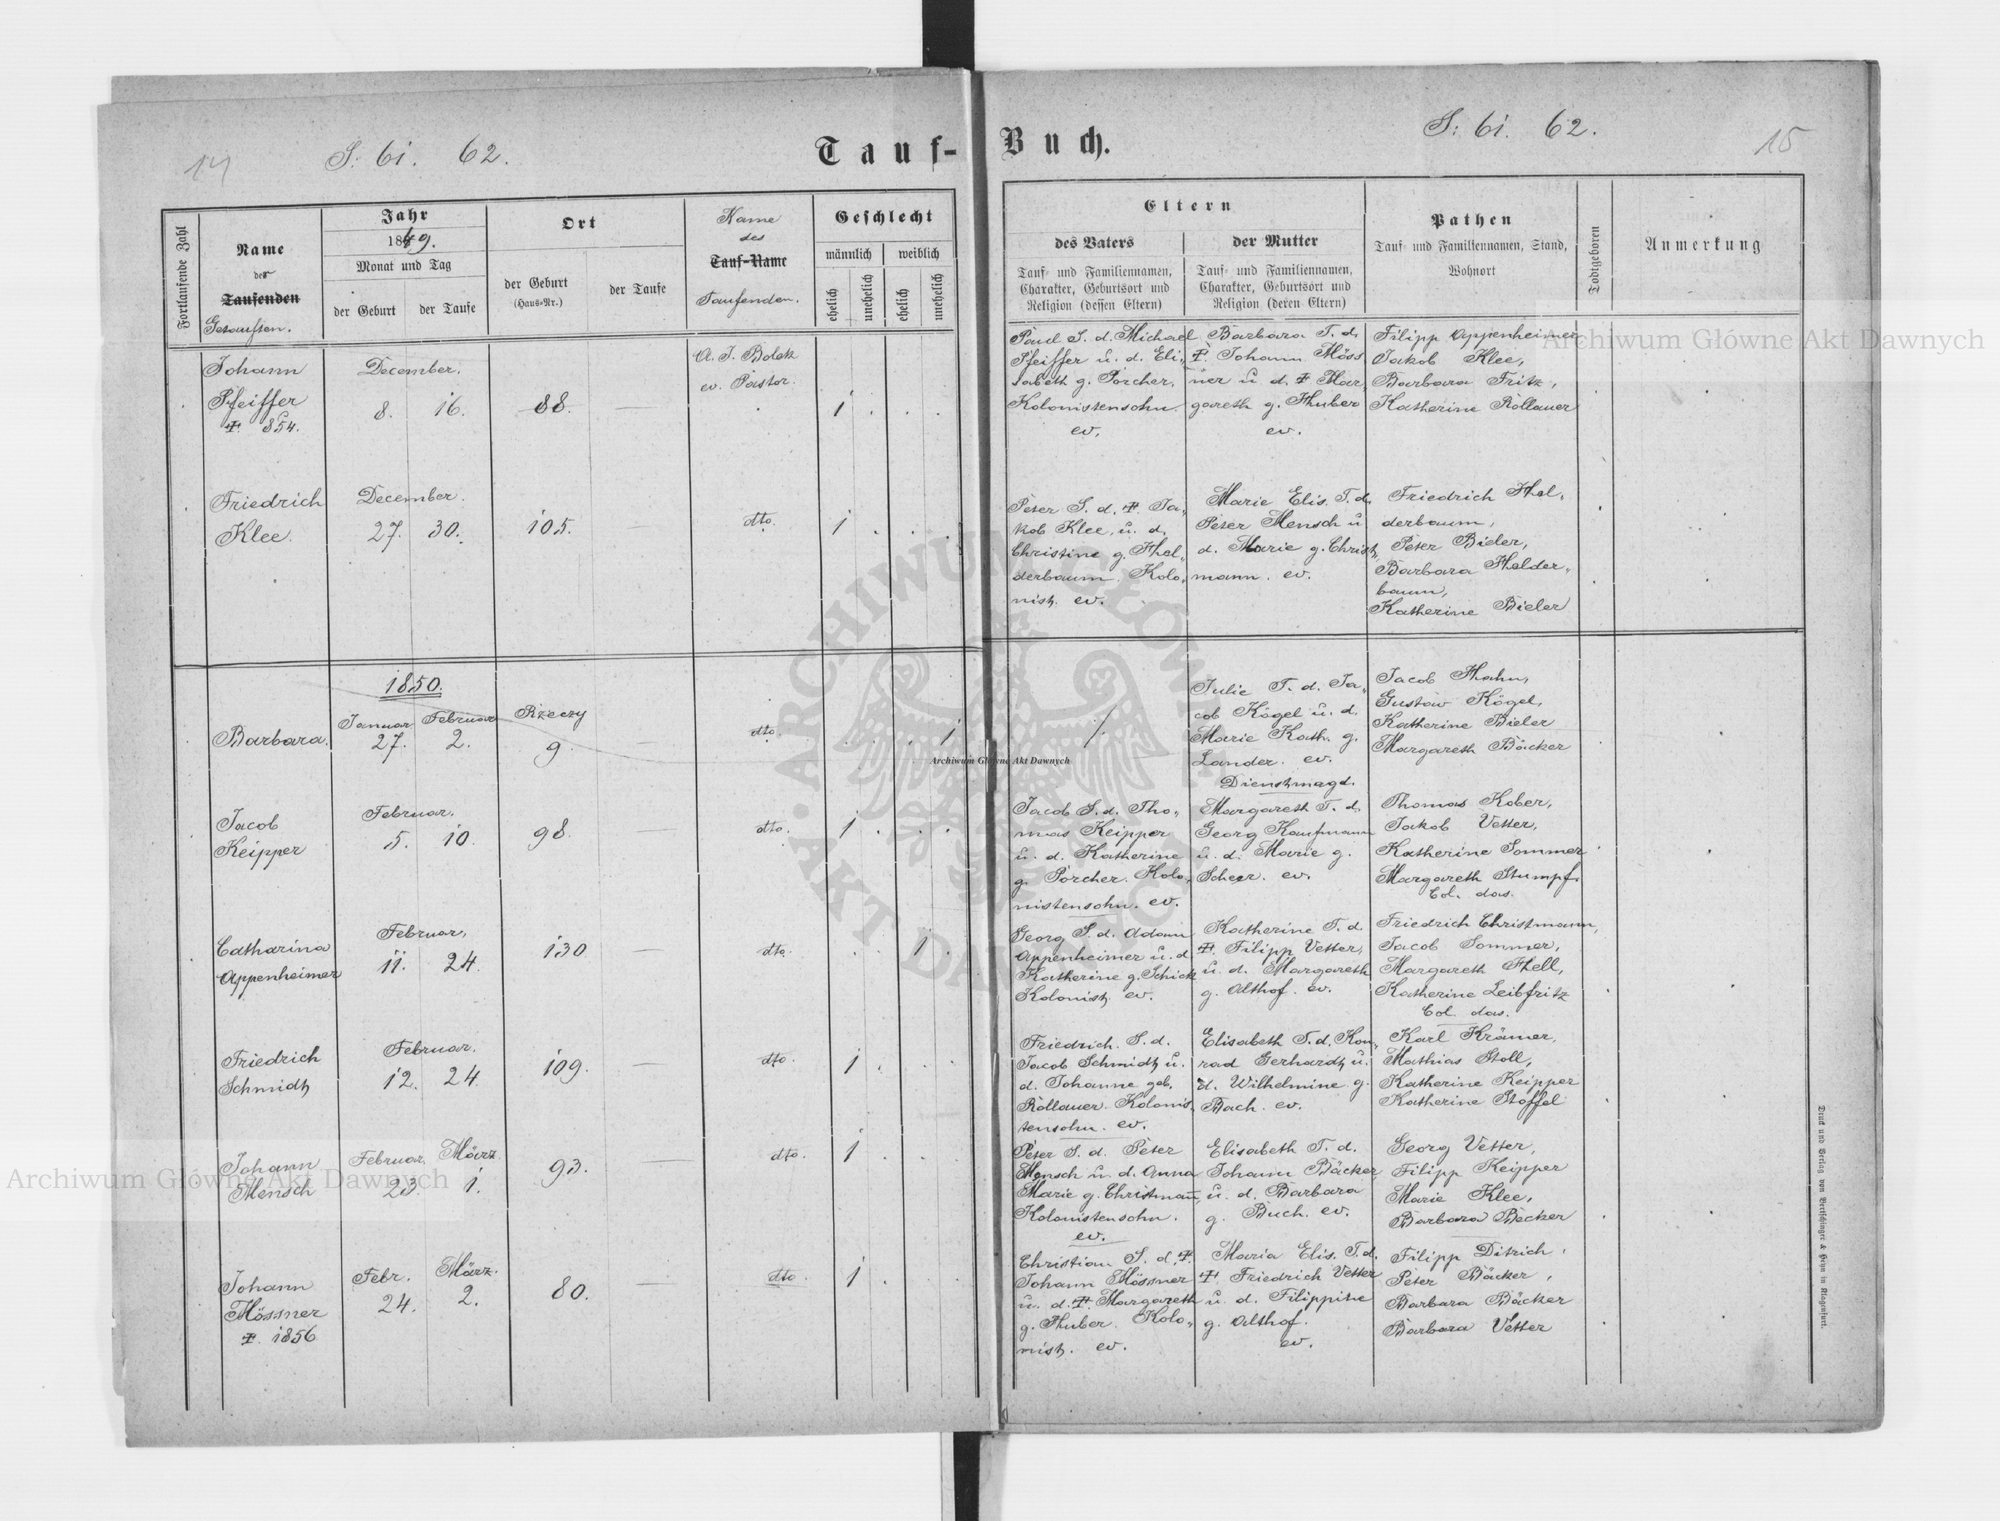 14
S: 61. 62.
Tauf-
Buch.
S: 61. 62.
15
Fortlaufende Zahl
Name
der
Taufenden
Getauften.
Jahr
1849.
Monat und Tag
der Geburt
der Taufe
Ort
der Geburt
(Haus-Nr.)
der Taufe
Name
des
Tauf-Name
Taufenden.
Geschlecht
männlich
weiblich
ehelich
unehelich
ehelich
unehelich
Eltern
des Vaters
Tauf- und Familiennamen,
Charakter, Geburtsort und
Religion (dessen Eltern)
der Mutter
Tauf- und Familiennamen,
Charakter, Geburtsort und
Religion (deren Eltern)
Pathen
Tauf- und Familiennamen, Stand,
Wohnort
Todtgeboren
Anmerkung
Johann
Pfeiffer
‡. 854.
December.
8. 16.
88.
A. J. Bolek
ev. Pastor.
1
Paul S. d. Michael
Pfeiffer u. d. Eli-
sabeth g. Porcher.
Kolonistensohn.
ev.
Barbara T. d.
‡ Johann Möss
ner u. d. ‡ Mar
gareth g. Huber
ev.
Filipp Appenheimer
Jakob Klee,
Barbara Fritz,
Katherine Rollauer
Friedrich
Klee.
December.
27. 30.
105.
dto.
1
Peter S. d. ‡. Ja-
kob Klee. u. d.
Christine g. Hel-
derbaum. Kolo-
nist. ev.
Marie Elis. T. d.
Peter Mensch u
d. Marie g. Christ-
mann. ev.
Friedrich Hel-
derbaum,
Peter Bieler,
Barbara Helder-
baum,
Katherine Bieler
1850.
Barbara.
Januar Februar
27. 2.
Rzeczy
9.
dto.
1
Julie T. d. Ja-
cob Kögel u. d.
Marie Kath. g.
Lander. ev.
Dienstmagd.
Jacob Hahn,
Gustav Kögel,
Katherine Bieler
Margareth Bäcker
Jacob
Keipper
Februar.
5. 10.
98.
dto.
1
Jacob S. d. Tho-
mas Keipper
u. d. Katherine
g. Porcher. Kolo-
nistensohn. ev.
Margareth T. d.
Georg Kaufmann
u. d. Marie g.
Scheer. ev.
Thomas Kober,
Jakob Vetter,
Katherine Sommer
Margareth Stumpf.
Col. das.
Catharina
Appenheimer
Februar.
11. 24.
130
dto.
1
Georg S. d. Adam
Appenheimer u. d
Katherine g. Schick
Kolonist. ev.
Katherine T. d
‡. Filipp Vetter,
u. d. Margareth
g. Althof. ev.
Friedrich Christmann,
Jacob Sommer,
Margareth Hell,
Katherine Leibfritz
Col. das.
Friedrich
Schmidt
Februar.
12. 24.
109.
dto.
1
Friedrich. S. d.
Jacob Schmidt u.
d. Johanne geb.
Rollauer. Kolonis-
tensohn. ev.
Elisabeth T. d. Kon-
rad Gerhardt u.
d. Wilhelmine g.
Bach. ev.
Karl Krämer,
Mathias Stoll,
Katherine Keipper
Katherine Stoffel
Johann
Mensch
Februar. März.
23. 1.
93.
dto.
1
Peter S. d. Peter
Mensch u. d. Anna
Marie g. Christmañ,
Kolonistensohn.
ev.
Elisabeth T. d.
Johann Bäcker,
u. d. Barbara
g. Buch. ev.
Georg Vetter,
Filipp Keipper
Marie Klee,
Barbara Becker
Johann
Mössner
‡. 1856
Febr. März.
24. 2.
80.
dto.
1
Christian S. d. ‡.
Johann Mössner
u. d. ‡. Margareth
g. Huber. Kolo-
nist. ev.
Maria Elis. T. d.
‡. Friedrich Vetter
u. d. Filippine
g. Althof.
ev.
Filipp Ditrich,
Peter Bäcker,
Barbara Bäcker
Barbara Vetter
Druck und Verlag von Bertschinger & Heyn in Klagenfurt.
Archiwum Główne Akt Dawnych
Archiwum Główne Akt Dawnych
Archiwum Główne Akt Dawnych
ARCHIWUM GŁÓWNE · AKT DAWNYCH ·